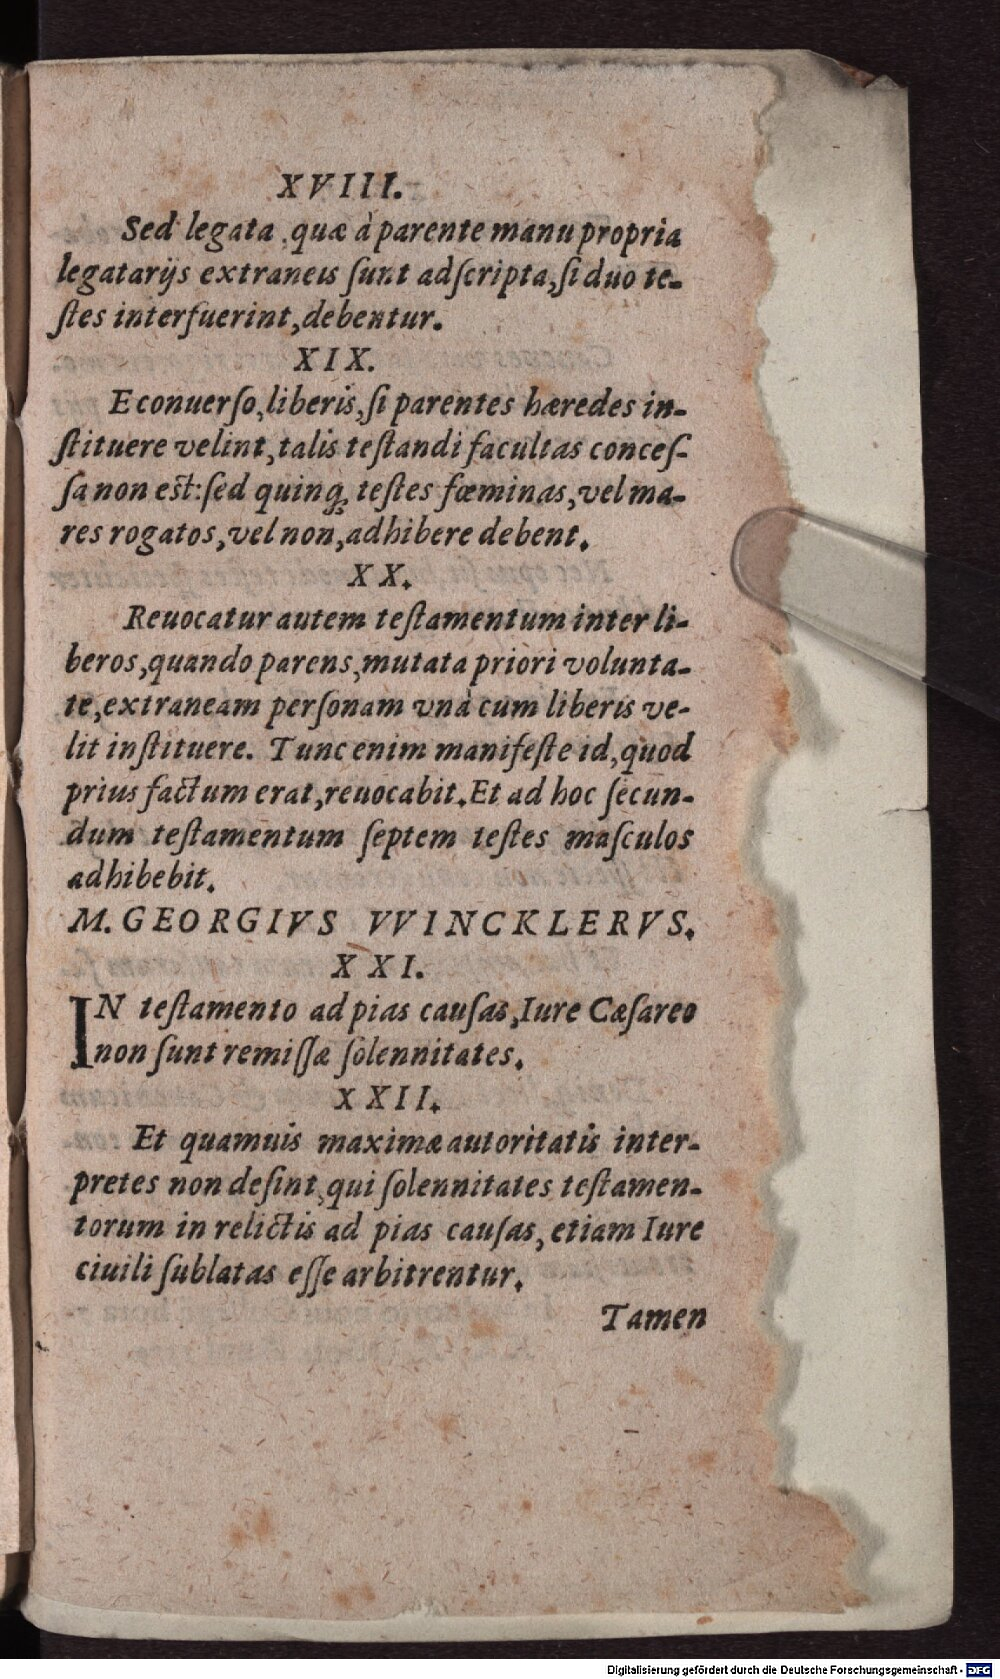 XVIII.
Sed legata, quæ à parente manu propria
legatarijs extraneis ſunt adſcripta, ſi duo te-
ſtes interfuerint, debentur.
XIX.
E conuerſo, liberis, ſi parentes hæredes in-
ſtituere velint, talis teſtandi facultas conceſ-
ſa non eſt: ſed quinq́; teſtes fœminas, vel ma-
res rogatos, vel non, adhibere debent.
XX.
Reuocatur autem teſtamentum inter li-
beros, quando parens, mutata priori volunta-
te, extraneam perſonam vnà cum liberis ve-
lit inſtituere. Tunc enim manifeſte id, quod
prius factum erat, reuocabit. Et ad hoc ſecun-
dum teſtamentum ſeptem teſtes maſculos
adhibebit.
M. GEORGIVS VVINCKLERVS.
XXI.
IN teſtamento ad pias cauſas, Iure Cæſareo
non ſunt remiſſæ ſolennitates.
XXII.
Et quamuis maximæ autoritatis inter-
pretes non deſint, qui ſolennitates teſtamen-
torum in relictis ad pias cauſas, etiam Iure
ciuili ſublatas eſſe arbitrentur.
Tamen
Digitalisierung gefördert durch die Deutsche Forschungsgemeinschaft - DFG